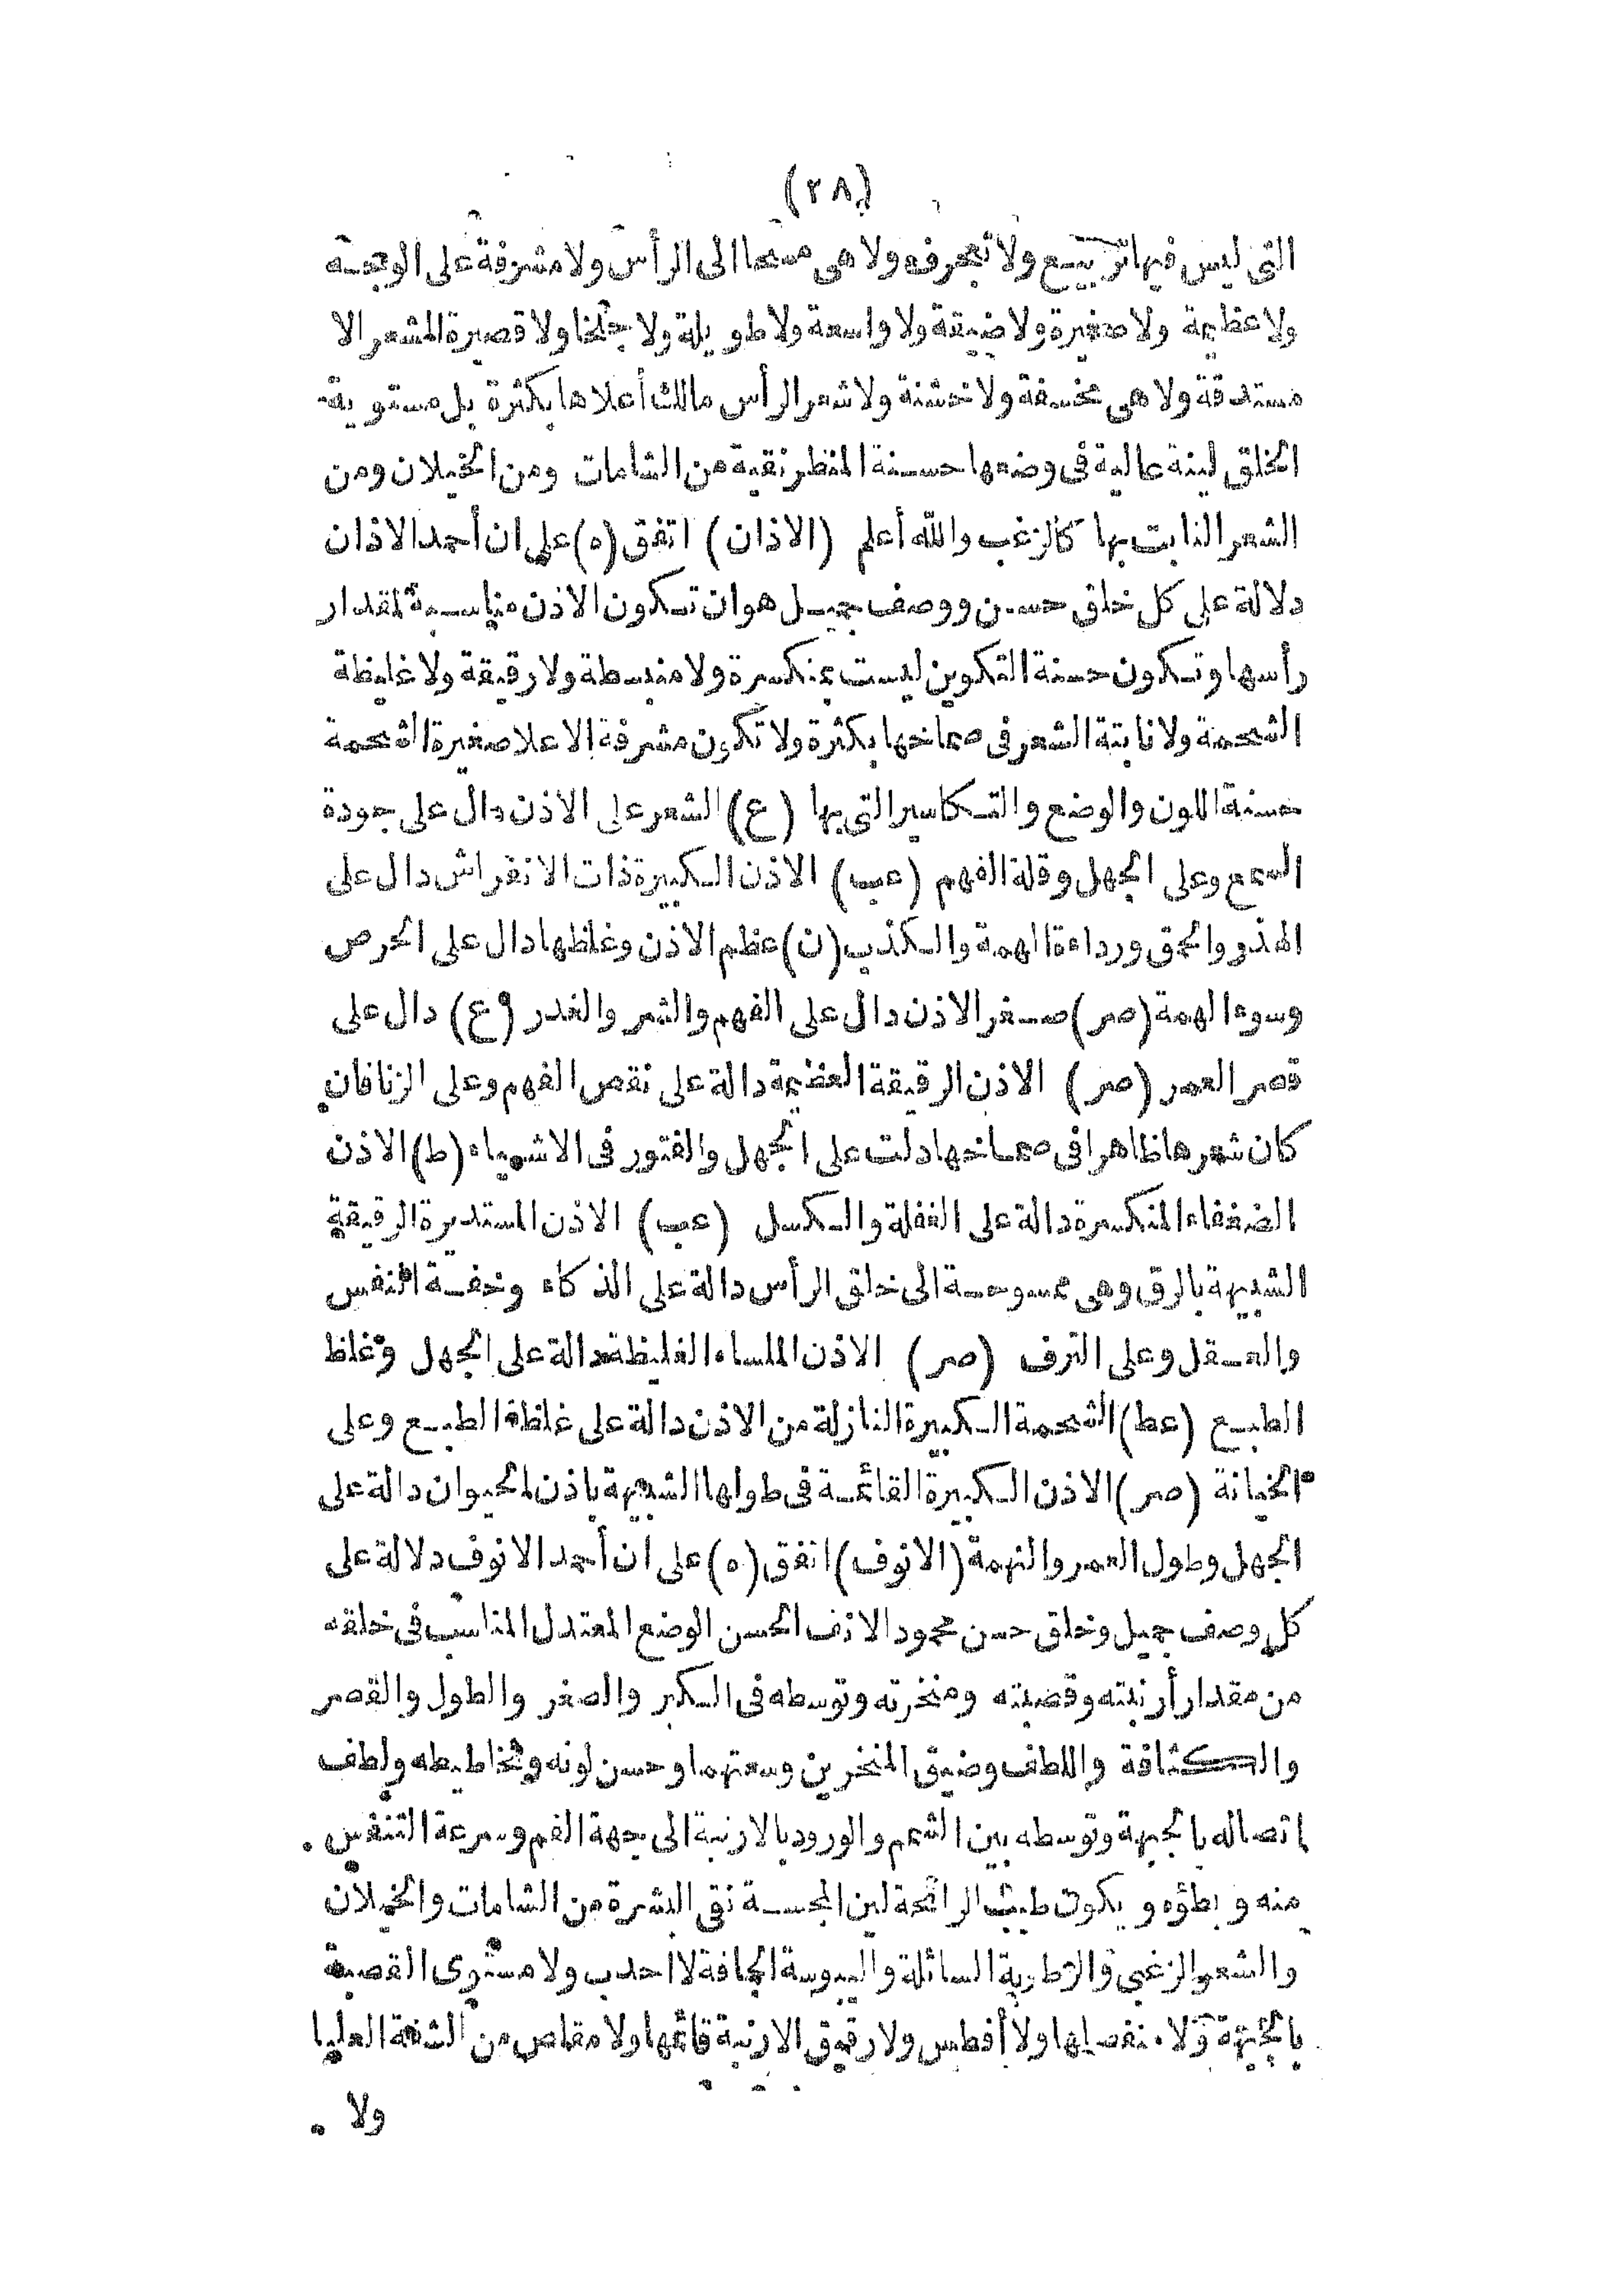 (٢٨)
التى ليس فيها تربيع ولا تجعرفه ولا هى مسحا الى الرأس ولا مشرفة على الوجه
ولا عظيمة ولا صغيرة ولا ضيقة ولا واسعة ولا طويلة ولا جلخا ولا قصيرة الشعر الا
مستدقة ولا هى مخسفة ولا خشنة ولا شعر الرأس مالك أعلاها بكثرة بل مستوية
الخلق لينة عالية فى وضعها حسنة المنظر نقية من الشامات ومن الخيلان ومن
الشعر النابت بها كالزغب والله أعلم (الاذان) اتفق (ه) على ان أحمد الاذان
دلالة على كل خلق حسن ووصف جميل هو ان تكون الاذن مناسبة لمقدار
رأسها وتكون حسنة التكوين ليست بمنكسرة ولا منبسطة ولا رقيقة ولا غليظة
الشحمة ولا نابتة الشعر فى صماخها بكثرة ولا تكون مشرفة الاعلا صغيرة الشحمة
حسنة اللون والوضع والتكاسير التى بها (ع) الشعر على الاذن دال على جودة
السمع وعلى الجهل وقلة الفهم (عب) الاذن الكبيرة ذات الانفراش دال على
الهذر والحمق ورداءة الهمة والكذب (ن) عظم الاذن وغلظها دال على الحرص
وسوء الهمة (صر) صغر الاذن دال على الفهم والشر والغدر (ع) دال على
قصر العمر (صر) الاذن الرقيقة العظيمة دالة على نقص الفهم وعلى الزنا فان
كان شعرها ظاهرا فى صماخها دلت على الجهل والفتور فى الاشياء (ط) الاذن
الضغفاء المنكسرة دالة على الغفلة والكسل (عب) الاذن المستديرة الرقيقة
الشبيهة بالرق وهى ممسوحة الى خلق الرأس دالة على الذكاء وخفة النفس
والعقل وعلى الترف (صر) الاذن الملساء الغليظة دالة على الجهل وغلظ
الطبع (عط) الشحمة الكبيرة النازلة من الاذن دالة على غلظة الطبع وعلى
الخيانة (صر) الاذن الكبيرة القائمة فى طولها الشبيهة باذن الحيوان دالة على
الجهل وطول العمر والنهمة (الانوف) اتفق (ه) على ان أحمد الانوف دلالة على
كل وصف جميل وخلق حسن محمود الانف الحسن الوضع المعتدل المناسب فى خلقه
من مقدار أرنبته وقصبته ومنخرته وتوسطه فى الكبر والصغر والطول والقصر
والكثافة واللطف وضيق المنخرين وسعتهما وحسن لونه وتخاطيطه ولطف
اتصاله بالجبهة وتوسطه بين الشمم والورود بالارنبة الى جهة الفم وسرعة التنفس
منه وبطؤه ويكون طيب الرائحة لين المجسة نقى البشرة من الشامات والخيلان
والشعر الزغبى والرطوبة السائلة واليبوسة الجافة لا احدب ولا مستوى القصبة
بالجبهة ولا منفصلها ولا أفطس ولا رقيق الارنبة قائمها ولا مقلص من الشفة العليا
ولا